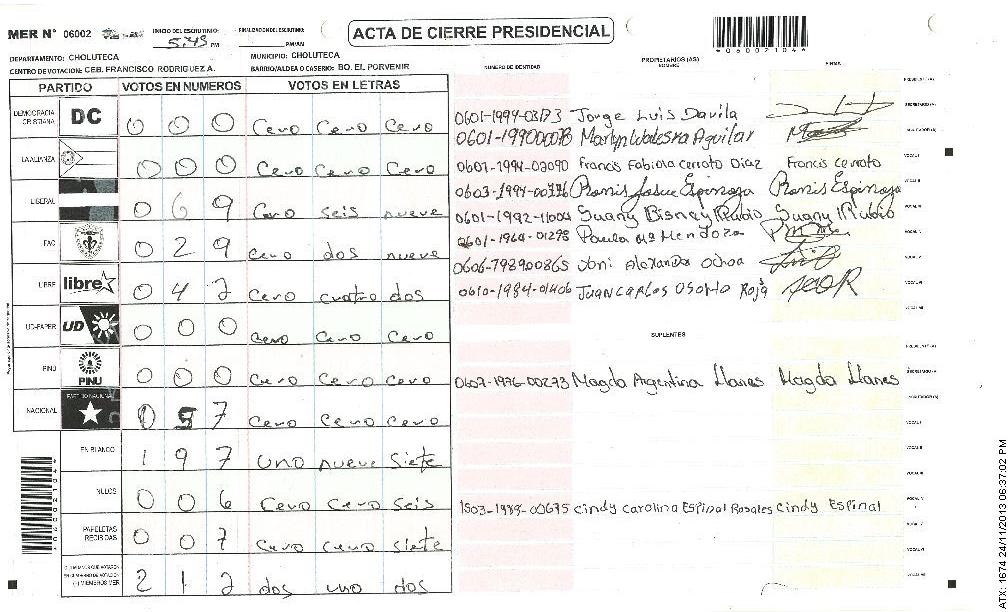 MER N° 06002
INICIO DEL ESCRUTINIO: 5:43 PM
FINALIZACION DEL ESCRUTINIO: PM/AM
ACTA DE CIERRE PRESIDENCIAL
*06002104*
DEPARTAMENTO: CHOLUTECA
MUNICIPIO: CHOLUTECA
CENTRO DE VOTACION: CEB. FRANCISCO RODRIGUEZ A.
BARRIO/ALDEA O CASERIO: BO. EL PORVENIR
NUMERO DE IDENTIDAD PROPIETARIOS (AS) NOMBRE FIRMA
PARTIDO VOTOS EN NUMEROS VOTOS EN LETRAS
DEMOCRACIA CRISTIANA DC 0 0 0 Cero Cero Cero
LA ALIANZA 0 0 0 Cero Cero Cero
LIBERAL 0 6 9 Cero seis nueve
FAC 0 2 9 cero dos nueve
LIBRE libre 0 4 2 Cero cuatro dos
UD-FAPER UD 0 0 0 cero Cero Cero
PINU PINU 0 0 0 Cero Cero Cero
NACIONAL PARTIDO NACIONAL 0 7 Cero Cero Cero
EN BLANCO 1 9 7 uno nueve siete
NULOS 0 0 6 Cero Cero seis
PAPELETAS RECIBIDAS 0 0 7 Cero cero siete
MIEMBROS MER 2 1 2 dos uno dos
PRESIDENTE (A)
SECRETARIO (A)
0601-1999-03173 Jorge Luis Davila
0601-1990 Marlyn Waleska Aguilar
ESCRUTADOR (A)
VOCAL I
0607-1994-02090 Francis Fabiola Cerrato Diaz Francis Cerrato
VOCAL II
0603-1994-00776 Josue Espinoza Espinoza
VOCAL III
0601-1992-11004 Suany Disney Rubio Suany Rubio
VOCAL IV
0601-1964-01298 Paula Mª Mendoza
VOCAL V
0606-798900865 Joni Alexander Ochoa
VOCAL VI
0610-1984-01406 Juan Carlos Osorto Roja
VOCAL VII
SUPLENTES
PRESIDENTE (A)
SECRETARIO (A)
0607-1976-00273 Magda Argentina Llanes Magda Llanes
ESCRUTADOR (A)
VOCAL I
VOCAL II
VOCAL III
VOCAL IV
1503-1989-00675 Cindy Carolina Espinal Rosales Cindy Espinal
VOCAL V
VOCAL VI
VOCAL VII
ATX: 1674 24/11/2013 06:37:02 PM